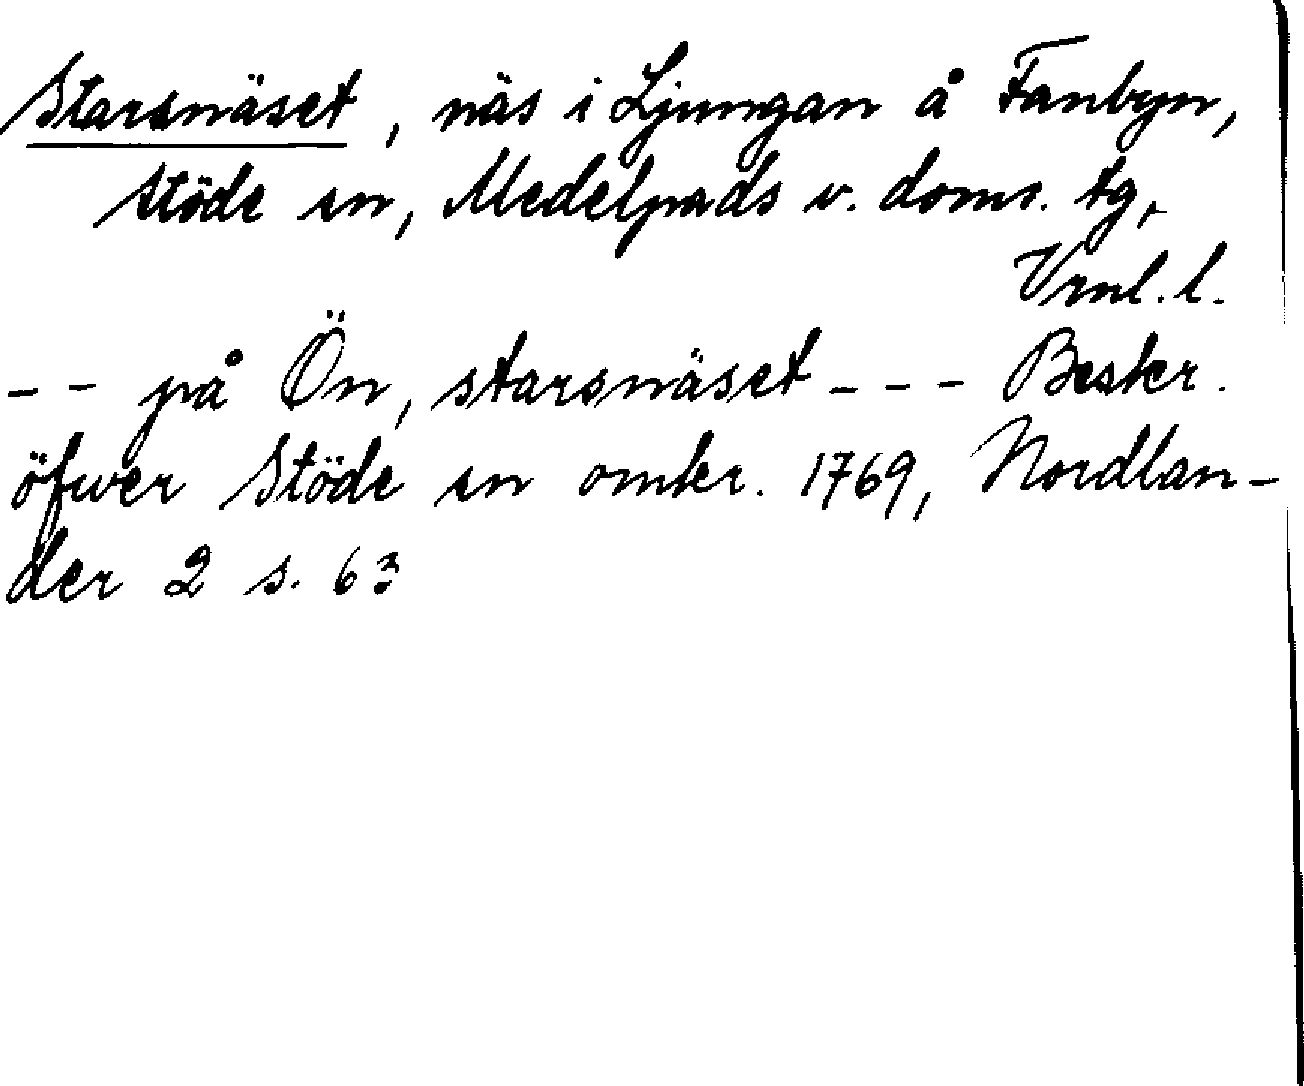 Starsnäset, näs i Ljungan å Fanbyn,
Stöde sn, Medelpads v. doms. tg,
Vrnl. l.
-- på Ön, starsnäset --- Beskr.
öfwer Stöde sn omkr. 1769, Nordlan-
der 2 s. 63